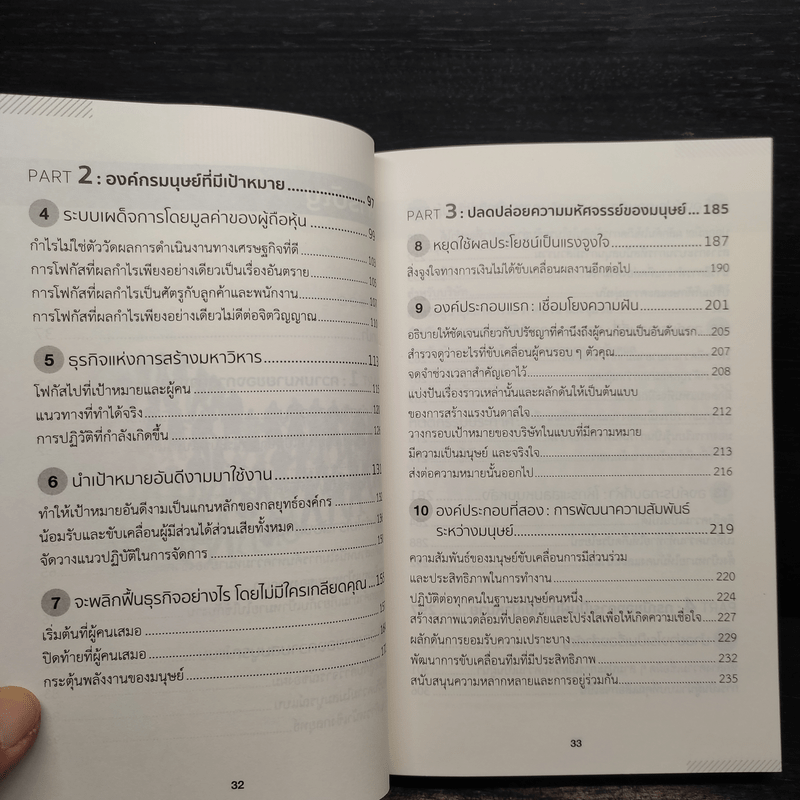 PART 2 : องค์กรมนุษย์ที่มีเป้าหมาย ..................... 97
4 ระบบเผด็จการโดยมูลค่าของผู้ถือหุ้น ............... 99
กำไรไม่ใช่ตัววัดผลการดำเนินงานทางเศรษฐกิจที่ดี .................... 103
การโฟกัสที่ผลกำไรเพียงอย่างเดียวเป็นเรื่องอันตราย .................... 105
การโฟกัสที่ผลกำไรเป็นศัตรูกับลูกค้าและพนักงาน .................... 107
การโฟกัสที่ผลกำไรเพียงอย่างเดียวไม่ดีต่อจิตวิญญาณ .................... 110
5 ธุรกิจแห่งการสร้างมหาวิหาร .................... 113
โฟกัสไปที่เป้าหมายและผู้คน .................... 115
แนวทางที่ทำได้จริง .................... 120
การปฏิวัติที่กำลังเกิดขึ้น ....................
6 นำเป้าหมายอันดีงามมาใช้งาน ....................
ทำให้เป้าหมายอันดีงามเป็นแกนหลักของกลยุทธ์องค์กร ....................
น้อมรับและขับเคลื่อนผู้มีส่วนได้ส่วนเสียทั้งหมด ....................
จัดวางแนวปฏิบัติในการจัดการ ....................
7 จะพลิกฟื้นธุรกิจอย่างไร โดยไม่มีใครเกลียดคุณ ....
เริ่มต้นที่ผู้คนเสมอ ....................
ปิดท้ายที่ผู้คนเสมอ ....................
กระตุ้นพลังงานของมนุษย์ ....................
32
PART 3 : ปลดปล่อยความมหัศจรรย์ของมนุษย์ ... 185
8 หยุดใช้ผลประโยชน์เป็นแรงจูงใจ .................... 187
สิ่งจูงใจทางการเงินไม่ได้ขับเคลื่อนผลงานอีกต่อไป .................... 190
9 องค์ประกอบแรก : เชื่อมโยงความฝัน .................... 201
อธิบายให้ชัดเจนเกี่ยวกับปรัชญาที่คำนึงถึงผู้คนก่อนเป็นอันดับแรก .... 205
สำรวจดูว่าอะไรที่ขับเคลื่อนผู้คนรอบ ๆ ตัวคุณ .................... 207
จดจำช่วงเวลาสำคัญเอาไว้ .................... 208
แบ่งปันเรื่องราวเหล่านั้นและผลักดันให้เป็นต้นแบบ
ของการสร้างแรงบันดาลใจ .................... 212
วางกรอบเป้าหมายของบริษัทในแบบที่มีความหมาย
มีความเป็นมนุษย์ และจริงใจ .................... 213
ส่งต่อความหมายนั้นออกไป .................... 216
10 องค์ประกอบที่สอง : การพัฒนาความสัมพันธ์
ระหว่างมนุษย์ .................... 219
ความสัมพันธ์ของมนุษย์ขับเคลื่อนการมีส่วนร่วม
และประสิทธิภาพในการทำงาน .................... 220
ปฏิบัติต่อทุกคนในฐานะมนุษย์คนหนึ่ง .................... 224
สร้างสภาพแวดล้อมที่ปลอดภัยและโปร่งใสเพื่อให้เกิดความเชื่อใจ .... 227
ผลักดันการยอมรับความเปราะบาง .................... 229
พัฒนาการขับเคลื่อนทีมที่มีประสิทธิภาพ .................... 232
สนับสนุนความหลากหลายและการอยู่ร่วมกัน .................... 235
33